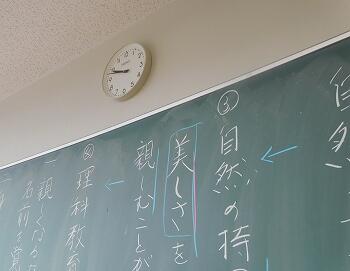 自然
③自然の持
美しさを
親しむことが
④理科教育
一親しくなる
名前を覚